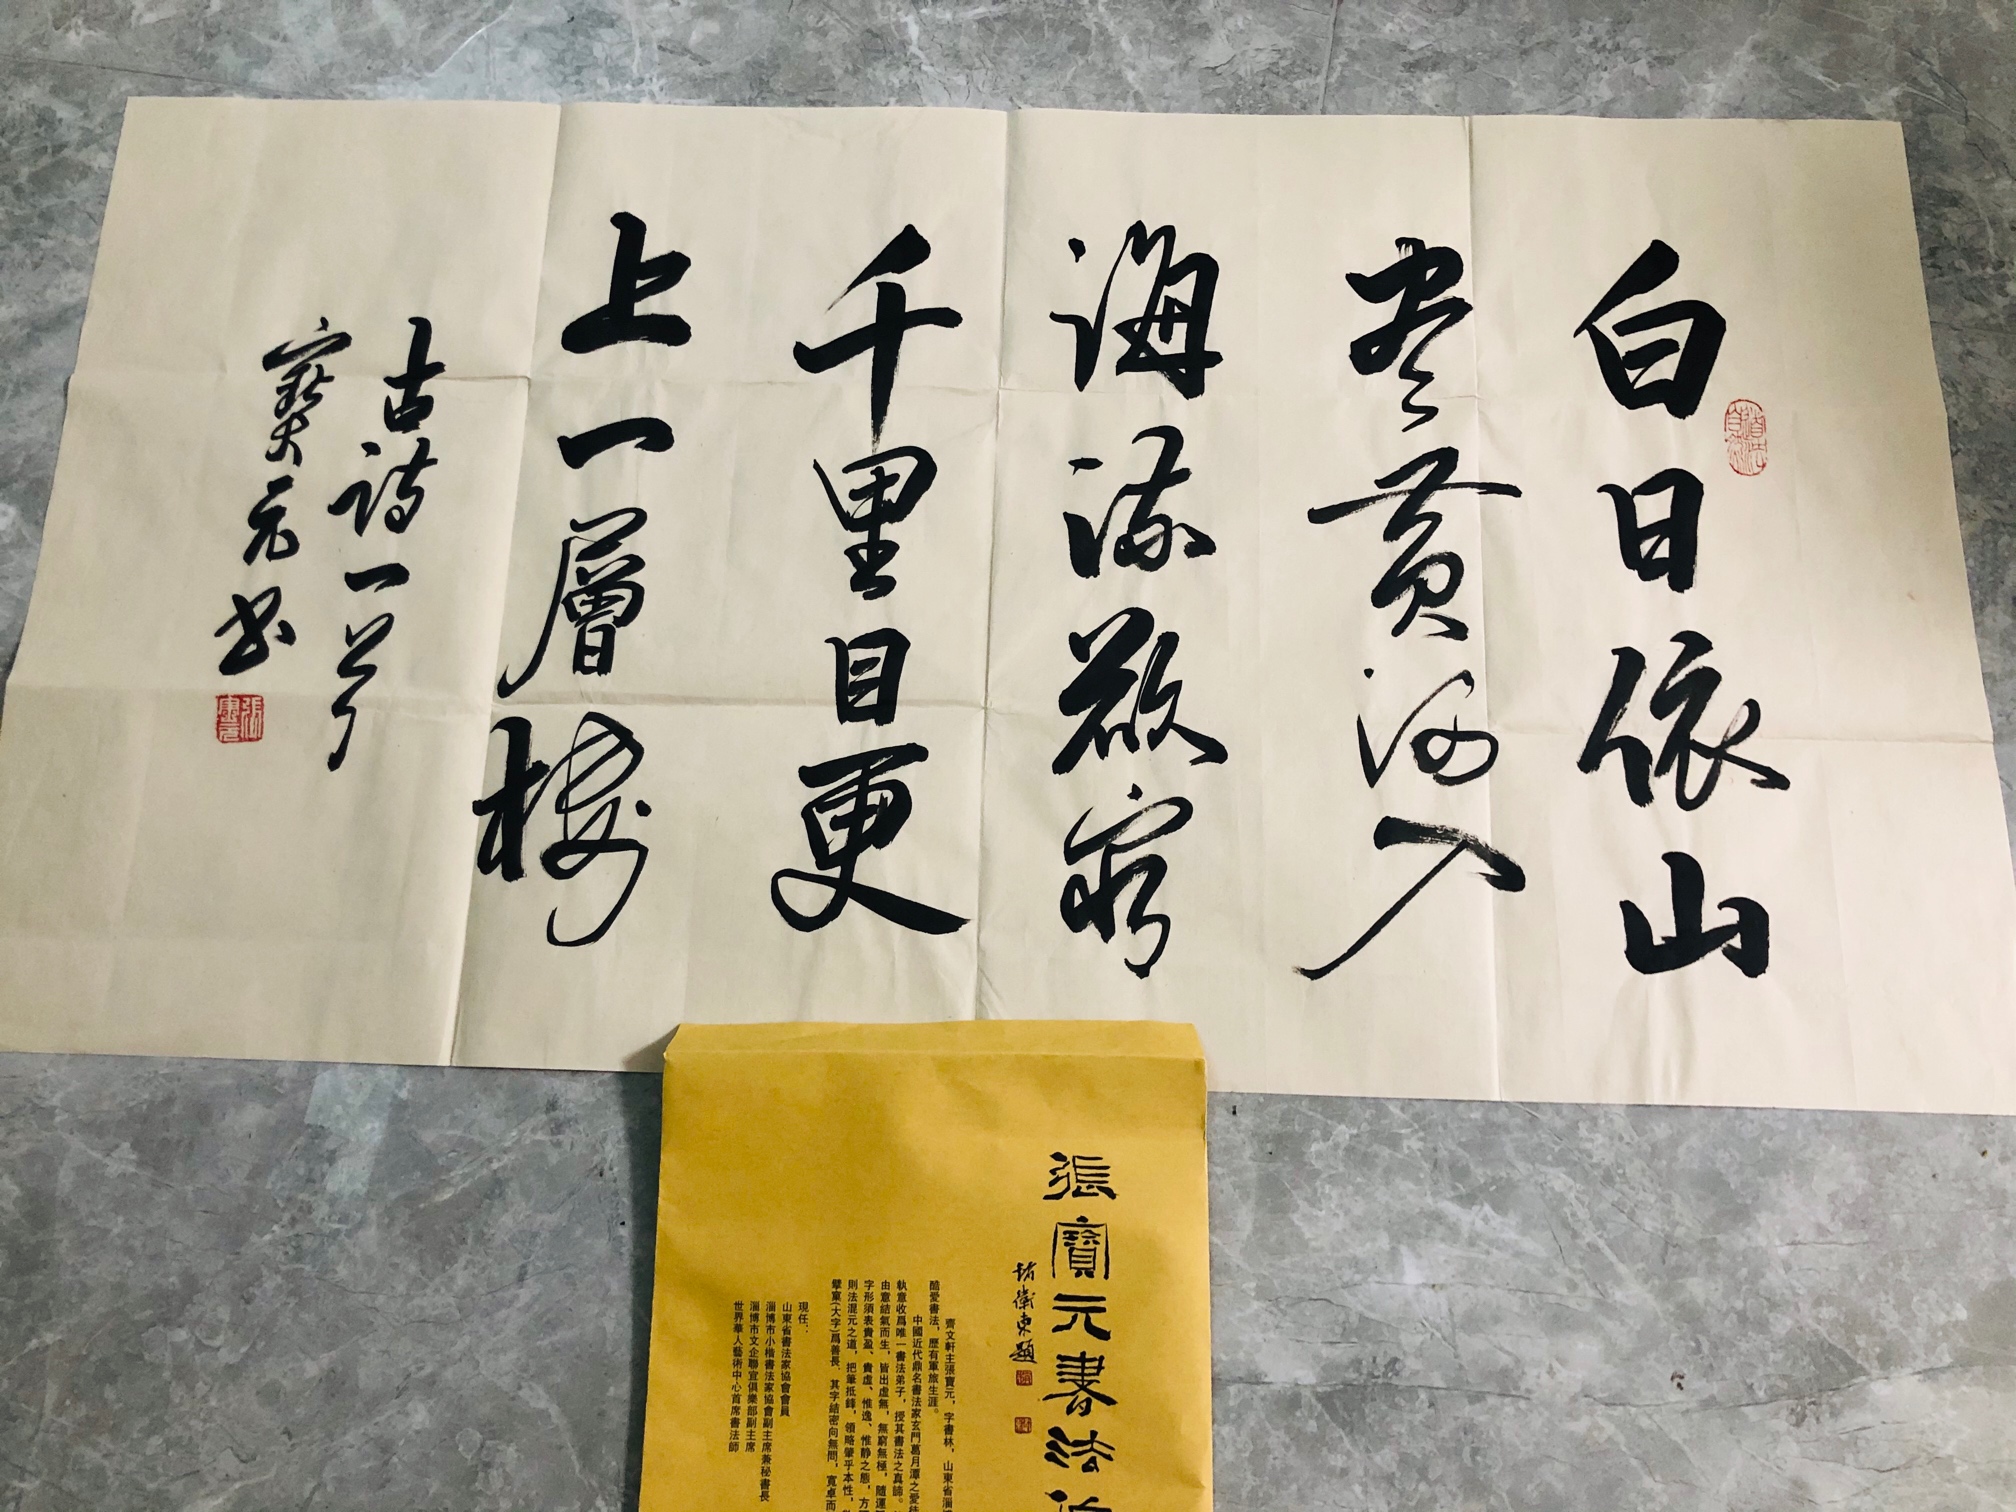 白日依山
盡黃河入
海流欲窮
千里目更
上一層樓
古詩一首
寶元书
張寶元
張寶元書法
衛東題
齊文軒主張寶元，字書林，山東省淄
酷愛書法，歷有軍旅生涯。
中國近代鼎名書法家玄門葛月潭之愛徒
執意收爲唯一書法弟子，授其書法之真諦。
由意結氣而生，皆出虛無，無窮無極，隨運
字形須表貴盈、貴虛、惟逸、惟静之態，方
則法混元之道，把筆抵鋒，領略肇乎本性，
擘窠(大字)爲善長、其字結密向無間，寬卓而
現任：
山東省書法家協會會員
淄博市小楷書法家協會副主席兼秘書長
淄博市文企聯宜俱樂部副主席
世界華人藝術中心首席書法師